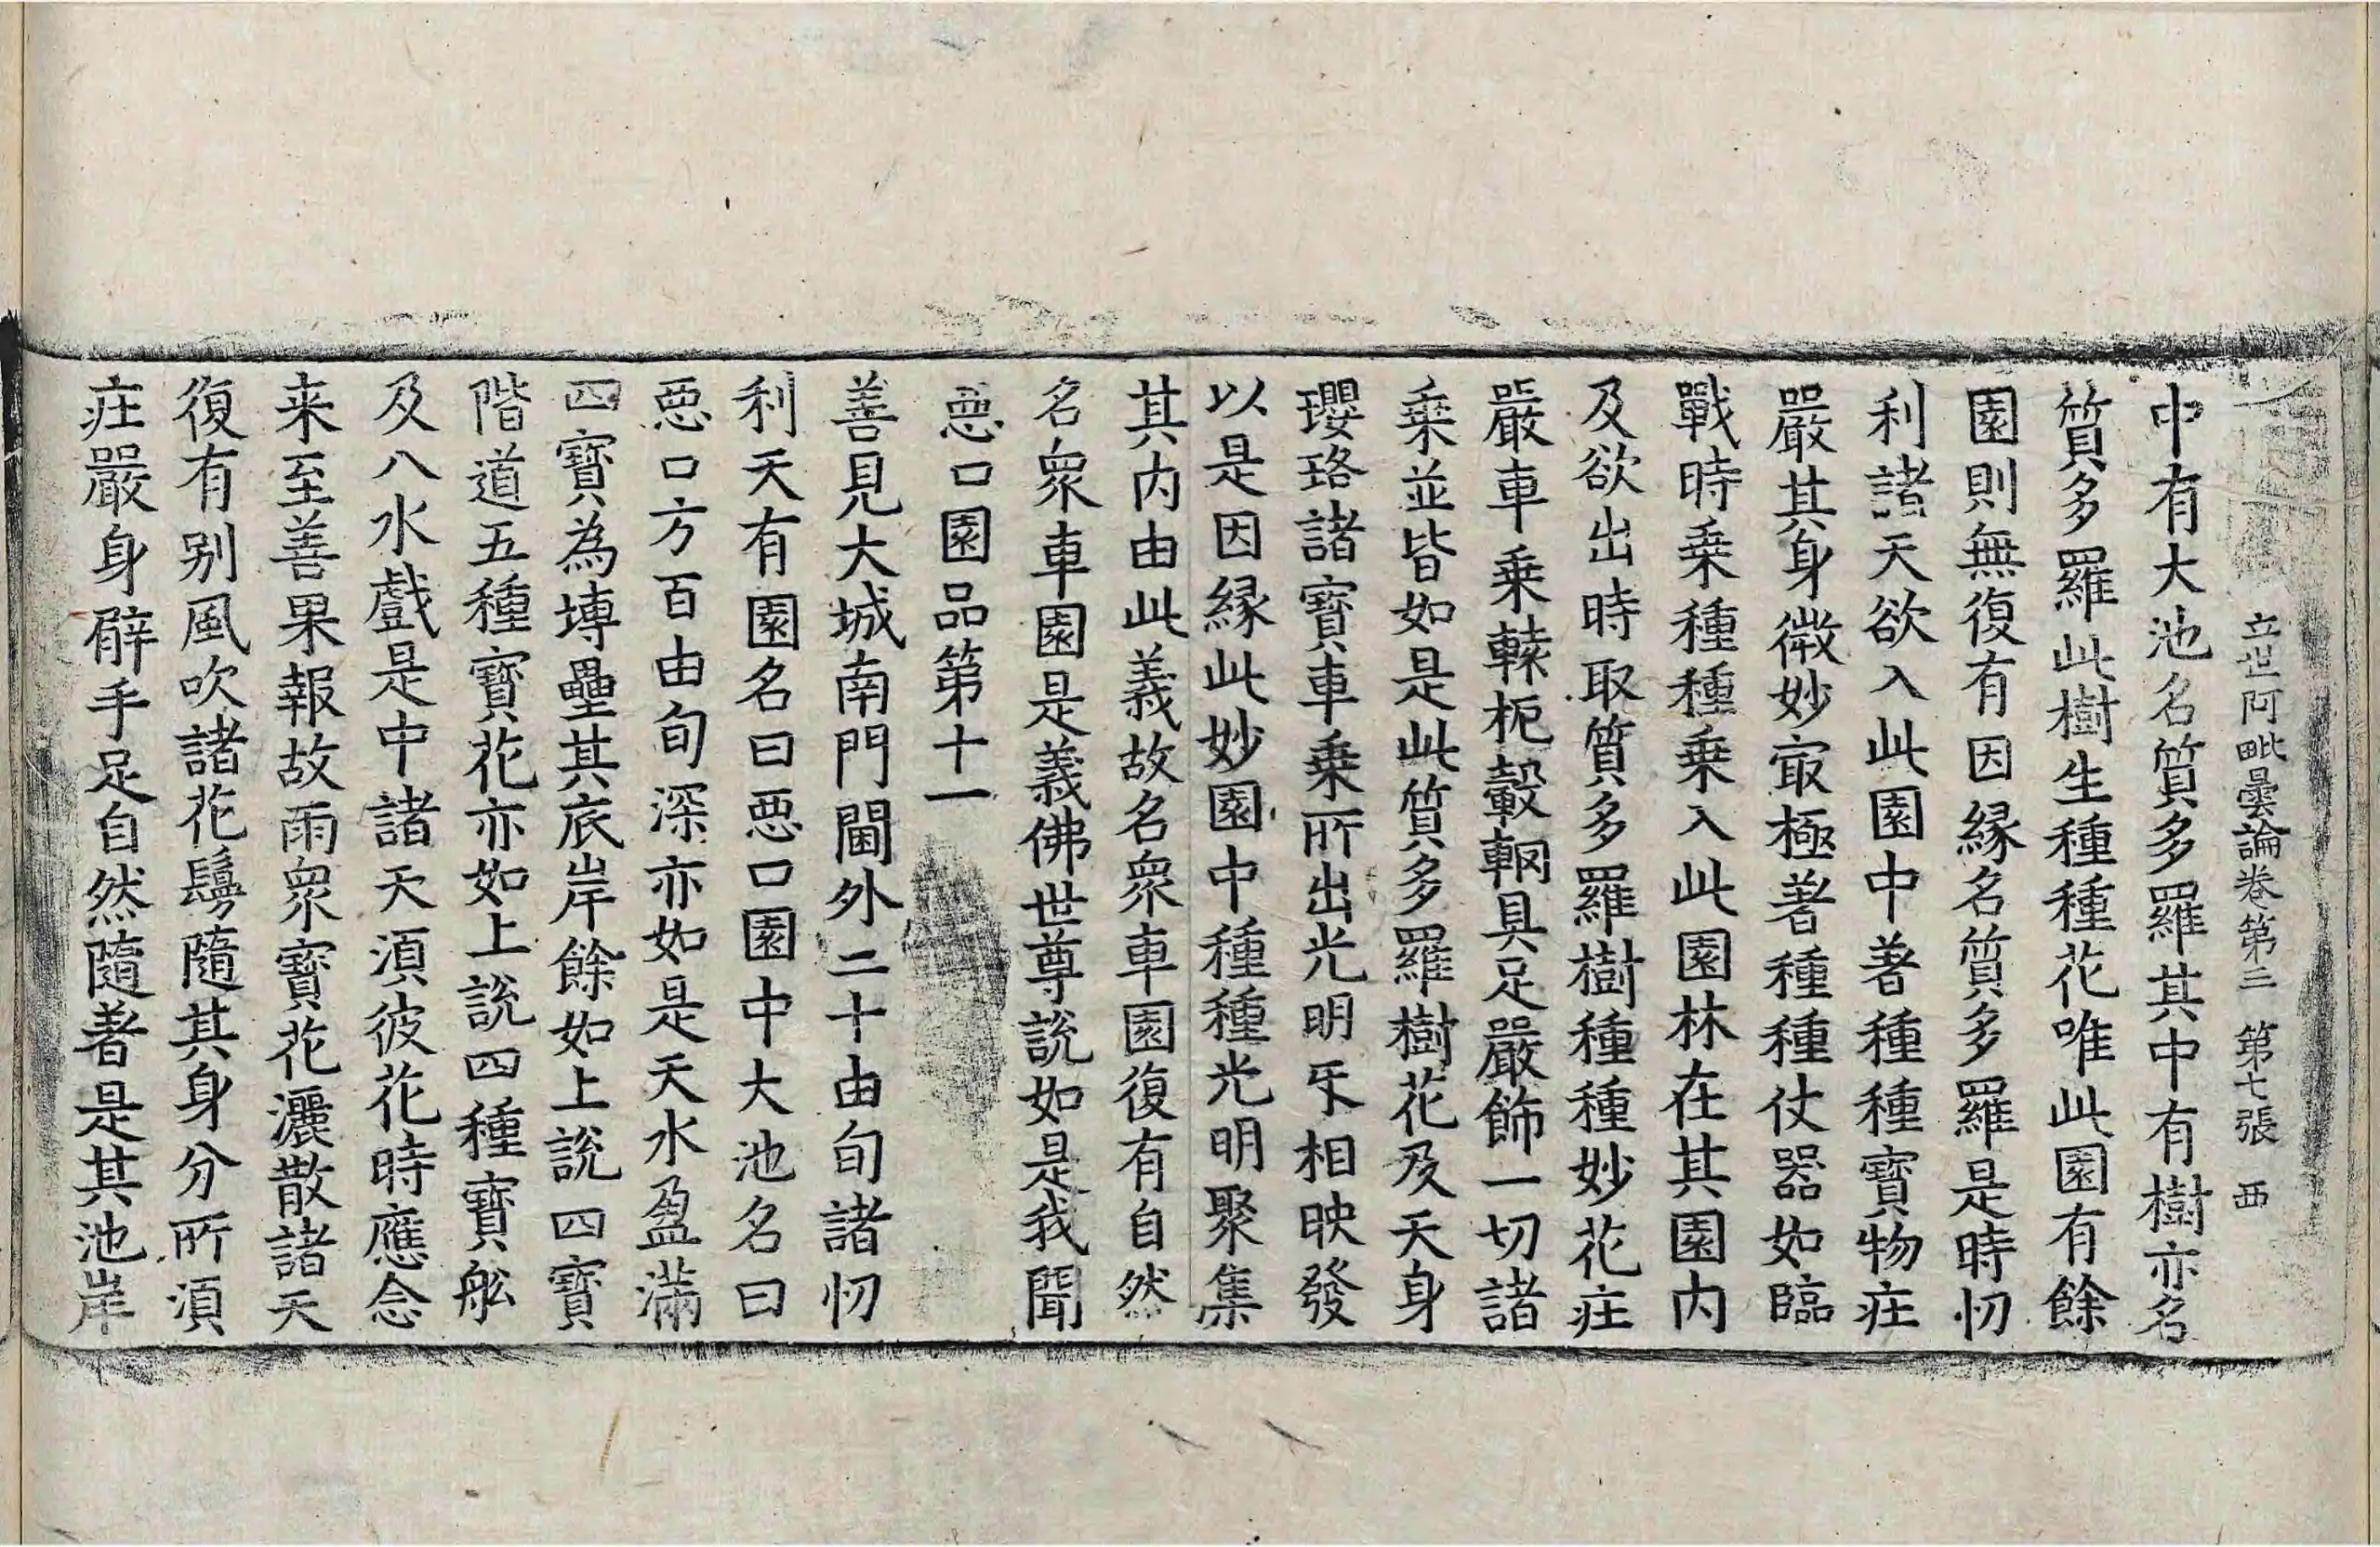 立世阿毗曇論卷第三　第七張　西
中有大池名質多羅其中有樹亦名
質多羅此樹生種種花唯此園有餘
園則無復有因緣名質多羅是時忉
利諸天欲入此園中著種種寶物庄
嚴其身微妙㝡極著種種仗器如臨
戰時乗種種乗入此園林在其園内
及欲出時取質多羅樹種種妙花庄
嚴車乗轅枙轂輞具足嚴飾一切諸
乗並皆如是此質多羅樹花及天身
瓔珞諸寳車乗所出光明㸦相映發
以是因緣此妙園中種種光明聚集
其内由此義故名衆車園復有自然
名衆車園是義佛世尊說如是我聞
惡口園品第十一
善見大城南門閫外二十由旬諸忉
利天有園名曰惡口園中大池名曰
惡口方百由旬深亦如是天水盈滿
四寳為塼壘其底岸餘如上說四寳
階道五種寳花亦如上說四種寳舩
及八水戲是中諸天須彼花時應念
来至善果報故雨衆寳花灑散諸天
復有别風吹諸花鬘隨其身分所須
庄嚴身臂手足自然隨著是其池岸